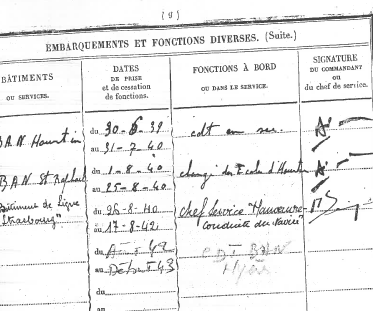 (9)
EMBARQUEMENTS ET FONCTIONS DIVERSES. (Suite.)
BÂTIMENTS
OU SERVICES.
DATES
DE PRISE
et de cessation
de fonctions.
FONCTIONS À BORD
OU DANS LE SERVICE.
SIGNATURE
DU COMMANDANT
ou
du chef de service.
B.A.N Hourtin
du 30-6-39
au 31-7-40
cdt en sec.
B.A.N St Raphael
du 1-8-40
au 25-8-40
chargé des Ecoles d'Hourtin
Bâtiment de Ligne
"Strasbourg"
du 26-8-40
au 17-8-42
Chef Service "Manoeuvre
conduite du Navire"
du 42
au Début 43
CDT BAN
Hyères
du
au